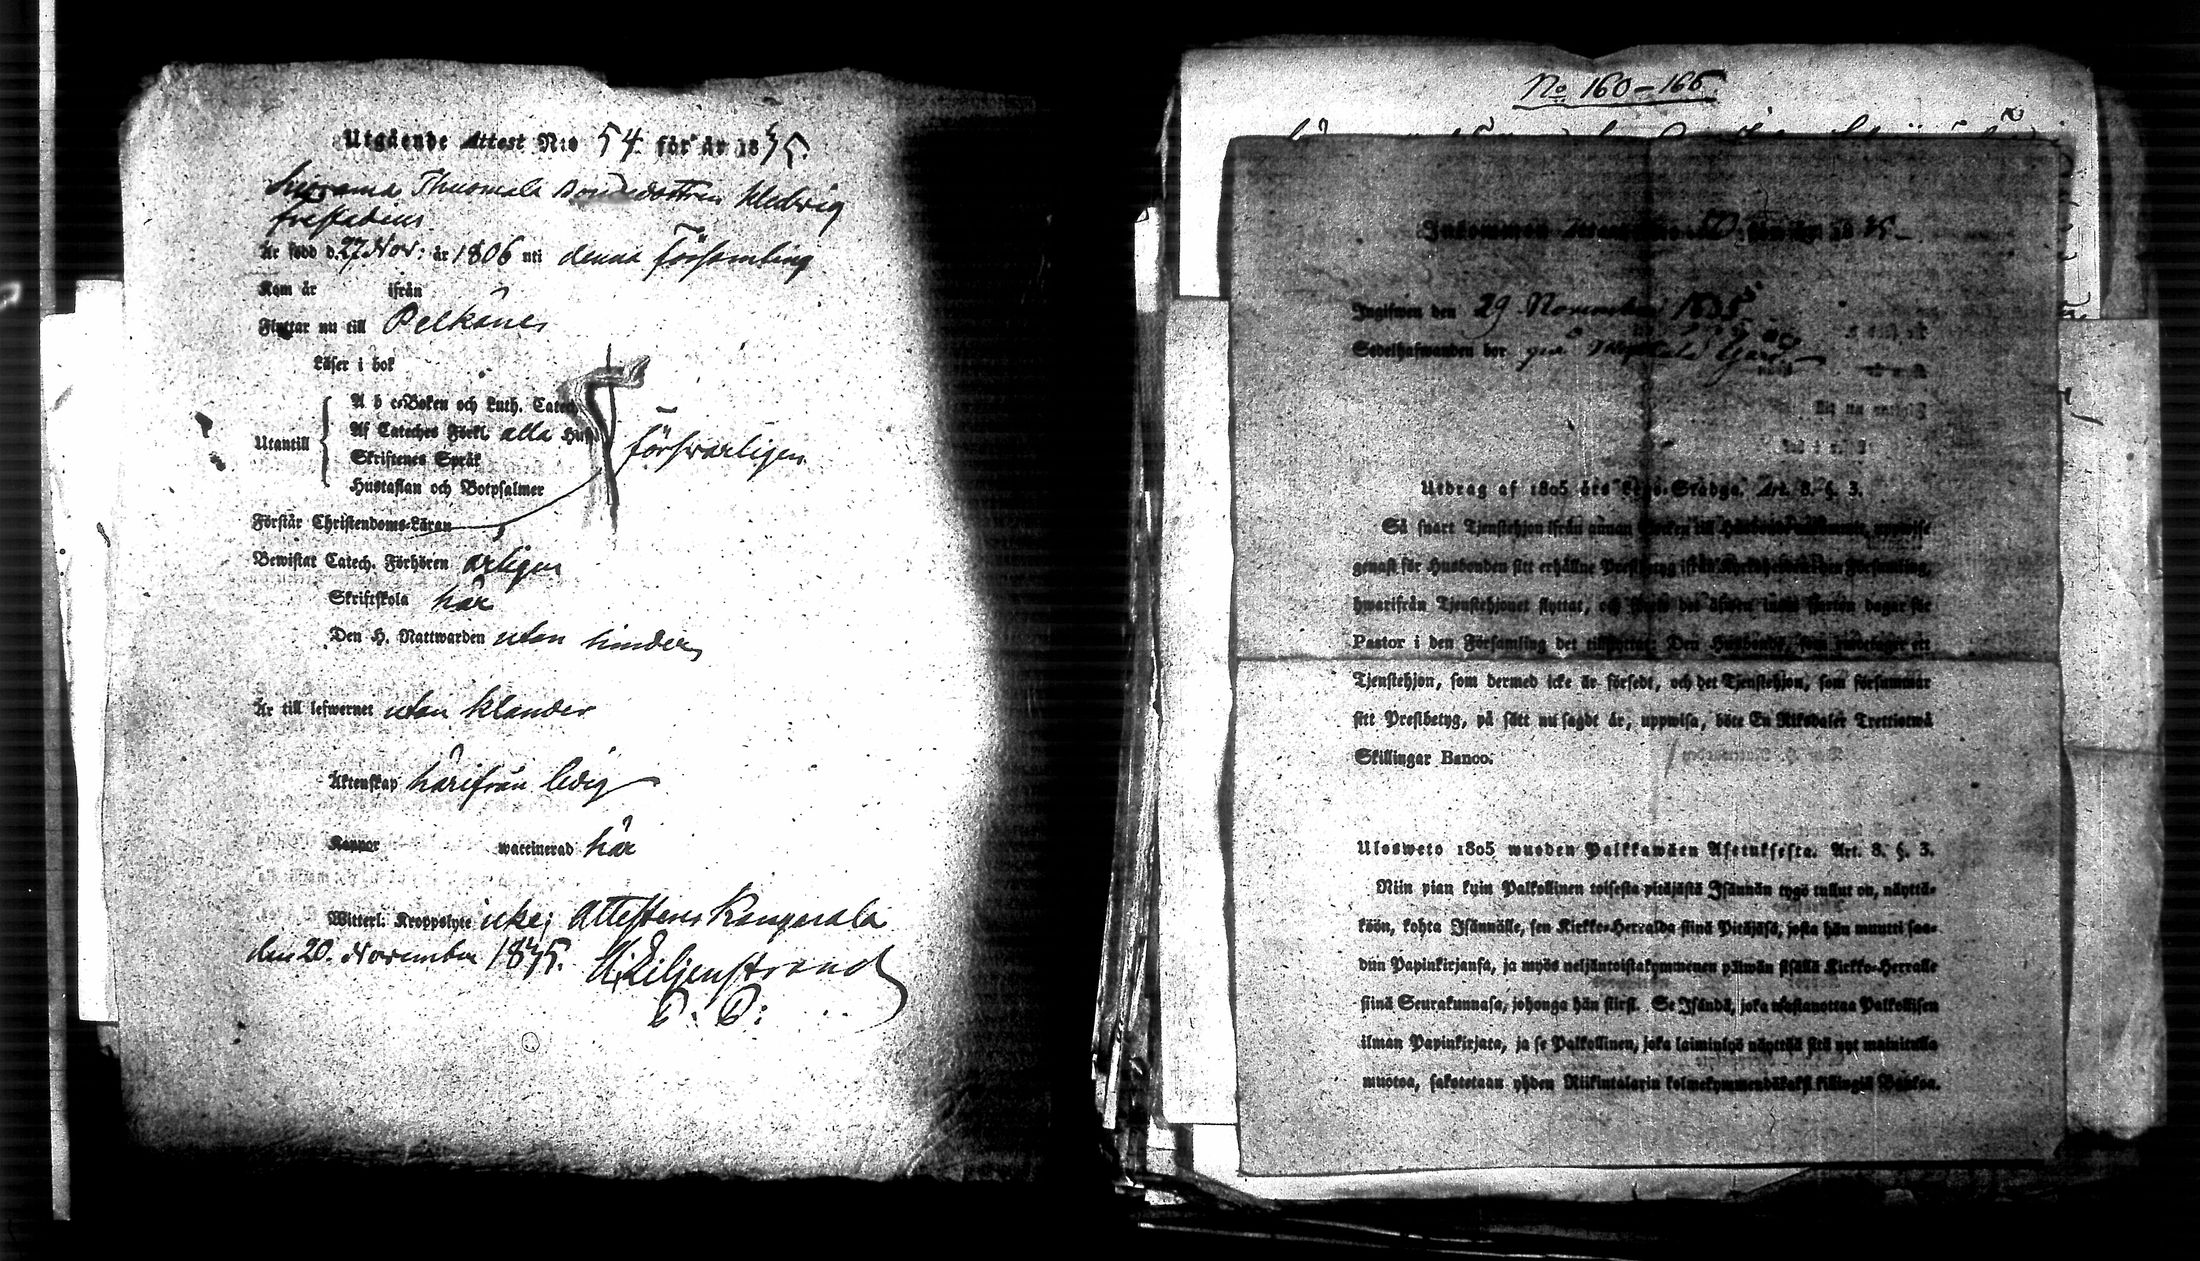 Utgående Attest N:o 54 för år 1835.
Thuomala Bondedottren Hedwig
är född d. 27 Nov: år 1806 uti denna Församling
Kom år ifrån
Flyttar nu till Pelkäne
Läser i bok
Utantill
A b c-Boken och Luth. Catech.
Af Cateches Förkl. alla Huf.
Skriftenes Språk
Hustaflan och Botpsalmer
försvarligen
Förstår Christendoms-Läran
Bewistat Catech. Förhören årligen
Skriftskola här
Den H. Nattwarden utan hinder
Är till lefwernet utan klander
Äktenskap härifrån ledig
Koppor waccinerad här
Witterl. Kroppslyte icke; Attesteras Kangasala
den 20. November 1835. Liljenstrand
No 160-166.
Inkommen för år 1835
Ingifwen den 29 November 1835
Sedelhafwanden bor på Gård
Utdrag af 1805 års Lego-Stadga. Art. 8. §. 3.
Så snart Tjenstehjon ifrån annan Socken till Husbonde ankommit, uppwise
genast för Husbonden sitt erhållne Prestbetyg ifrån Kyrkoherden i den Församling,
hwarifrån Tjenstehjonet flyttat, och inom fjorton dagar för
Pastor i den Församling det tillflyttat. Den Husbonde, som emottager ett
Tjenstehjon, som dermed icke är försedt, och det Tjenstehjon, som försummar
sitt Prestbetyg, på sätt nu sagdt är, uppwisa, böte En Riksdaler Trettiotwå
Skillingar Banco.
Ulosweto 1805 wuoden Palkkawäen Asetuksesta. Art. 8. §. 3.
Niin pian kuin Palkollinen toisesta pitäjästä Isännän tygö tullut on, näyttä-
köön, kohta Isännälle, sen Kirkko-Herralda siinä Pitäjäsä, josta hän muutti saa-
dun Papinkirjansa, ja myös neljäntoistakymmenen päiwän sisällä Kirkko-Herralle
siinä Seurakunnasa, johonga hän siirsi. Se Isändä, joka wastanottaa Palkollisen
ilman Papinkirjata, ja se Palkollinen, joka laiminlyö näyttää sitä nyt mainitulla
muotoa, sakotetaan yhden Riikintalarin kolmekymmendäkaksi killingiä Bankoa.